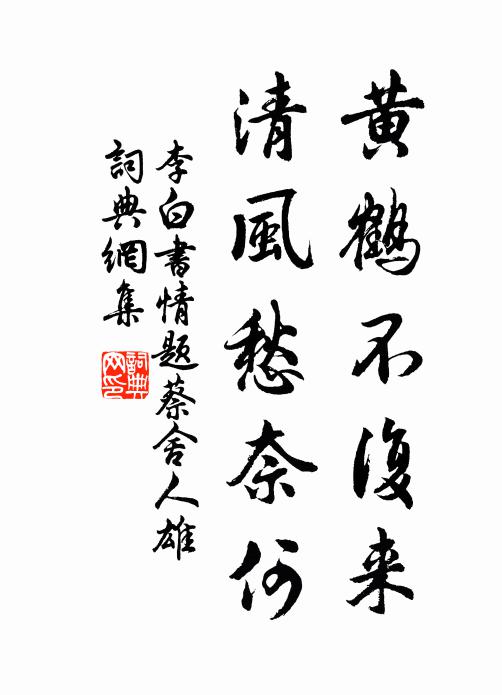 黄鹤不復来
清風愁奈何
李白書情題蔡舍人雄
詞典網集
詞典网印